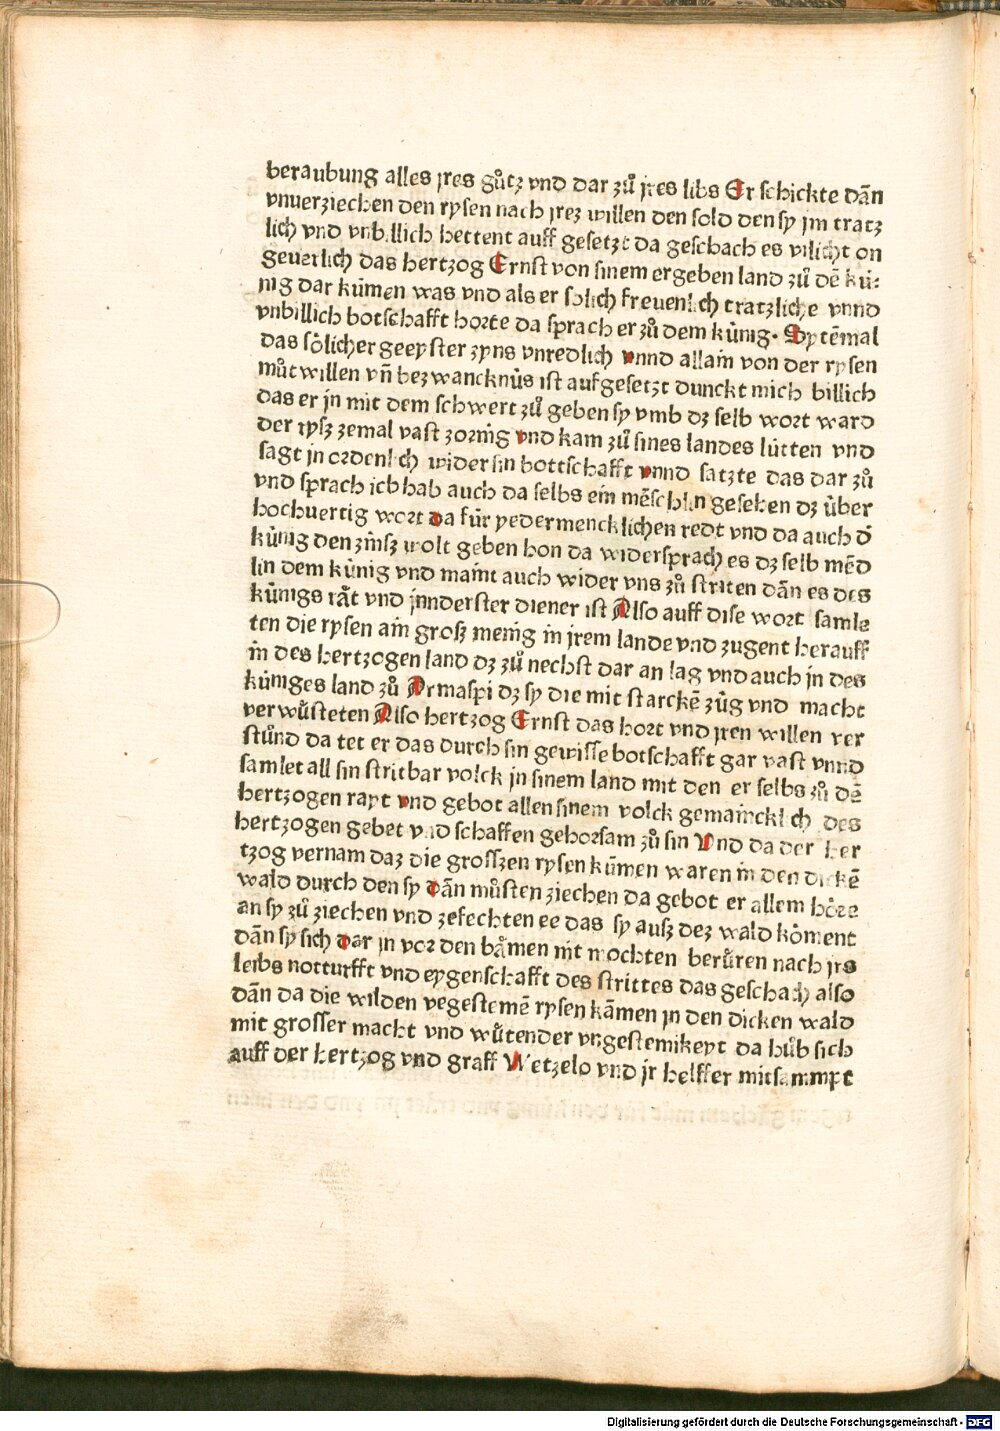 beraubung alles jres gůtz vnd dar zů jres libs Er schickte dãn
vnuerziechen den rysen nach jrez willen den sold den sy jm tratz
lich vnd vnbillich hettent auff gesetzt da geschach es vilicht on
geuerlich das hertzog Ernst von sinem ergeben land zů dẽ kü⸗
nig dar kümen was vnd als er solich freuenlich tratzliche vnnd
vnbillich botschafft horte da sprach er zů dem künig. Sytẽmal
das sölicher geeyster zyns vnredlich vnnd allain von der rysen
můtwillen vñ bezwancknüs ist aufgesetzt dunckt mich billich
das er jn mit dem schwert zů geben sy vmb dz selb wort ward
der rysz zemal vast zornig vnd kam zů sines landes lütten vnd
sagt jn ordenlich wider sin bottschafft vnnd satzte das dar zů
vnd sprach ich hab auch da selbs ein mẽschlin gesehen dz über
hochuertig wort da für yedermencklichen redt vnd da auch d̾
künig den zinsz wolt geben hon da widersprach es dz selb mẽd
lin dem künig vnd maint auch wider vns zů striten dãn es des
künigs råt vnd jnnderster diener ist Also auff dise wort samle
ten die rysen ain grosz menig in jrem lande vnd zugent herauff
in des hertzogen land dz zů nechst dar an lag vnd auch jn des
küniges land zů Armaspi dz sy die mit starckẽ züg vnd macht
verwůsteten Also hertzog Ernst das hort vnd jren willen ver
stůnd da tet er das durch sin gewisse botschafft gar vast vnnd
samlet all sin stritbar volck jn sinem land mit den er selbs zů dẽ
hertzogen rayt vnd gebot allen sinem volck gemaincklich des
hertzogen gebet vnd schaffen gehorsam zů sin Vnd da der her
tzog vernam daz die groszen rysen kümen waren in den dickẽ
wald durch den sy dãn můsten ziechen da gebot er allem höre
an sy zů ziechen vnd zefechten ee das sy ausz dez wald köment
dãn sy sich dar jn vor den båmen nit mochten berůren nach jrs
leibs notturfft vnd eygenschafft des strittes das geschach also
dãn da die wilden vegestemẽ rysen kãmen jn den dicken wald
mit grosser macht vnd wůtender vngestemikeyt da hůb sich
auff der hertzog vnd graff Wetzelo vnd jr helffer mitsammpt
Digitalisierung gefördert durch die Deutsche Forschungsgemeinschaft - DFG